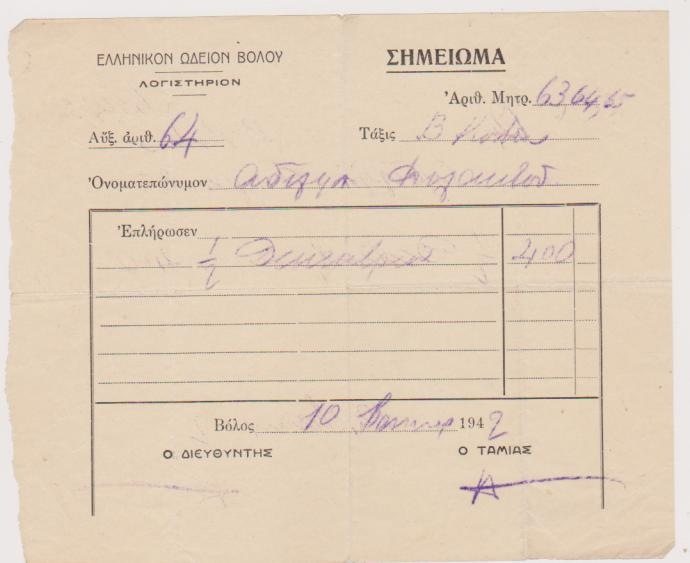 ΕΛΛΗΝΙΚΟΝ ΩΔΕΙΟΝ ΒΟΛΟΥ
ΛΟΓΙΣΤΗΡΙΟΝ
ΣΗΜΕΙΩΜΑ
Ἀριθ. Μητρ. 63,64,65
Αὔξ. ἀριθ. 64
Τάξις Β
Ὀνοματεπώνυμον
Ἐπλήρωσεν
1/2 400
Βόλος 10 1942
Ο ΔΙΕΥΘΥΝΤΗΣ
Ο ΤΑΜΙΑΣ